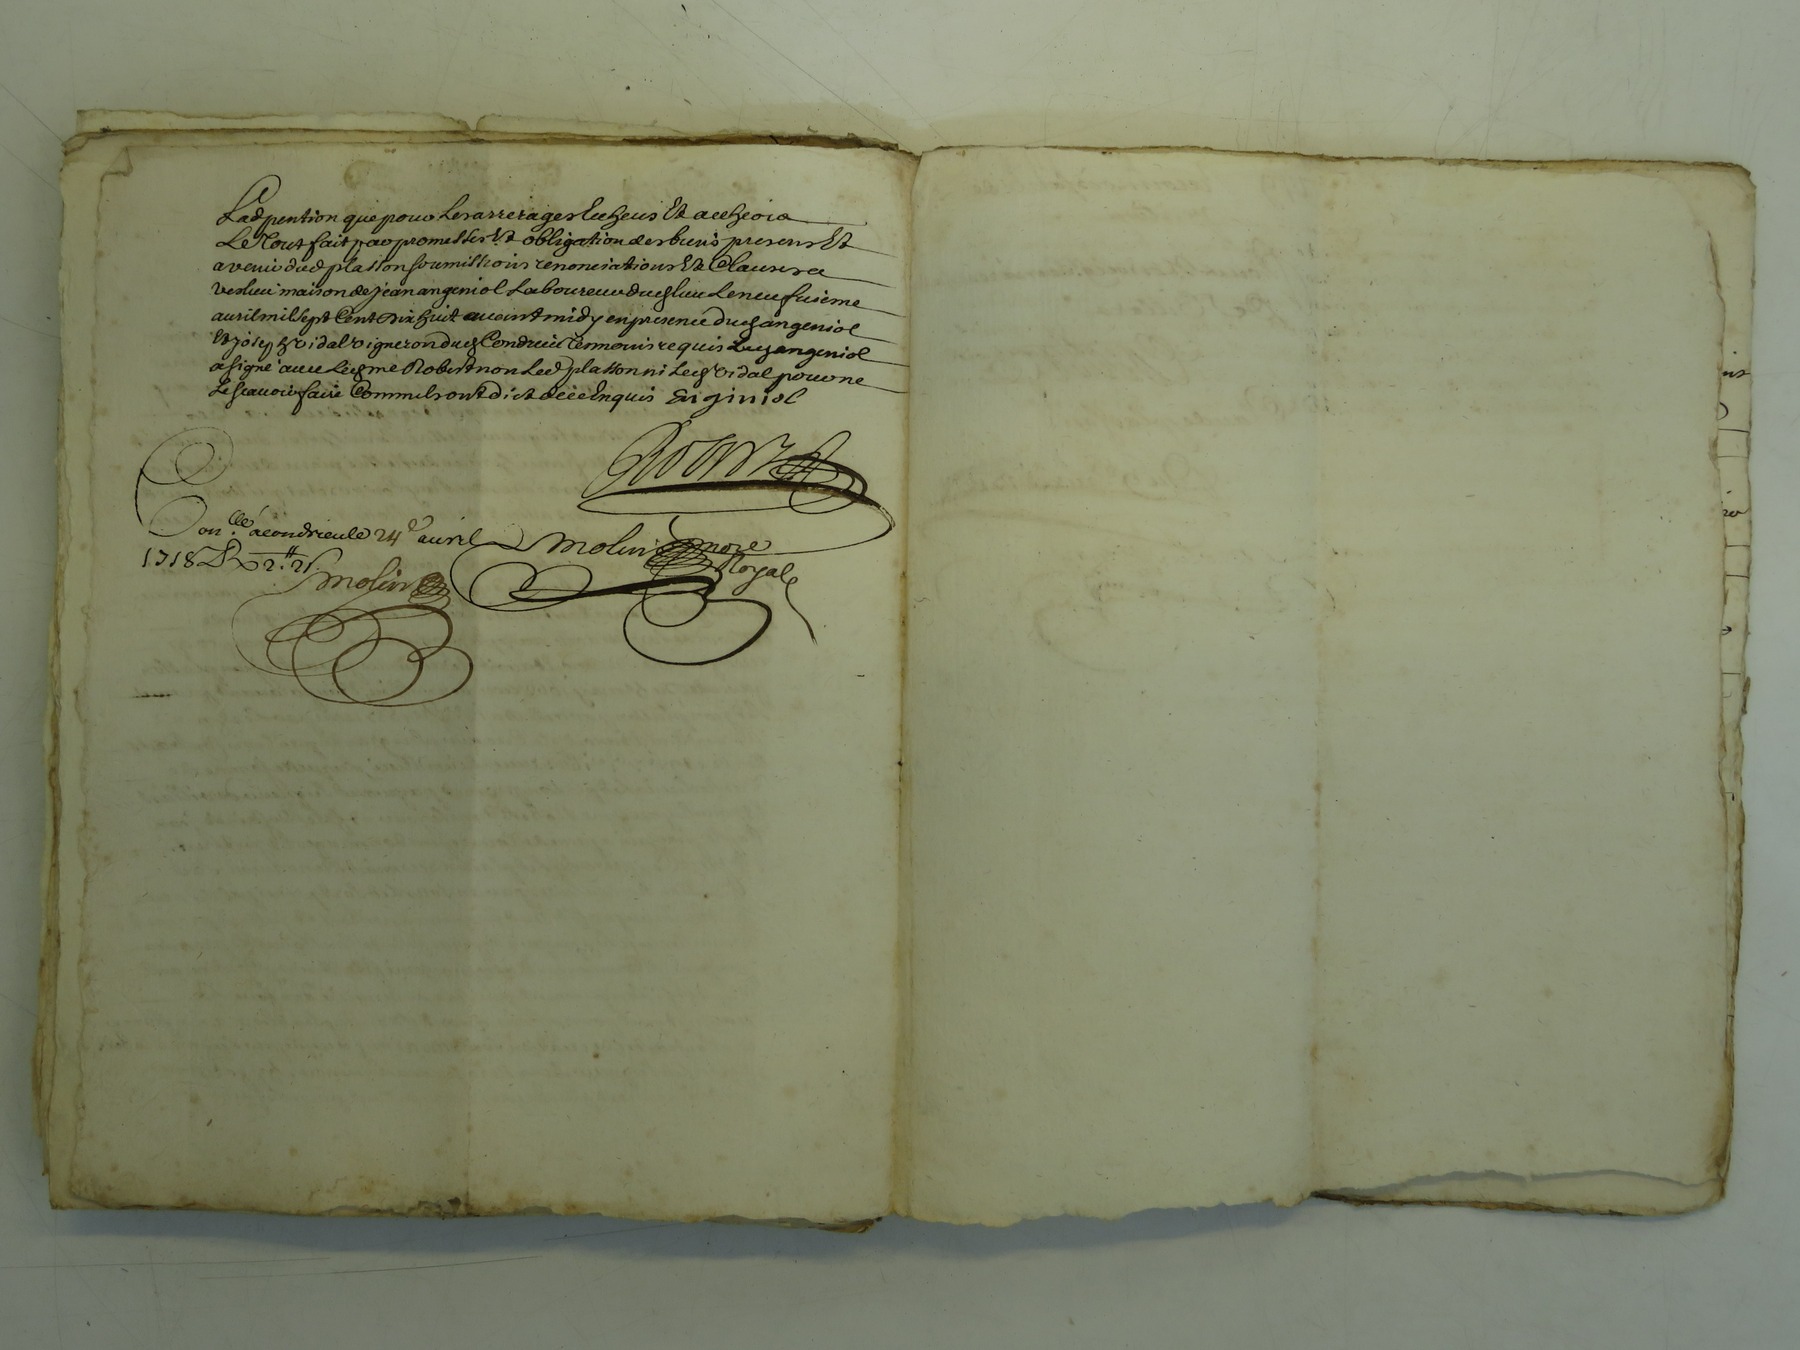 Lad pention que pour Les arrerages Escheus Et a escheoir
Le Tout fait par promesses Et obligation des biens presens Et
avenir dud plasson soumissions renonciations Et Clauses a
verlieu maison de jean angeniol Laboureur dud lieu Le neufvieme
avril mil sept Cent dix huit avant midy en presence dud angeniol
Et joseph vidal vigneron dud Condrieu Temoins requis Led angeniol
a signé avec Led me Robert non Led plasson ni Led vidal pour ne
Le scavoir faire Comm ils ont dict de ce Enquis Enginiol
Robert
Con.llé a condrieu le 24e avril
1718 R 2.tt 2s
molin
molin nore
Royal